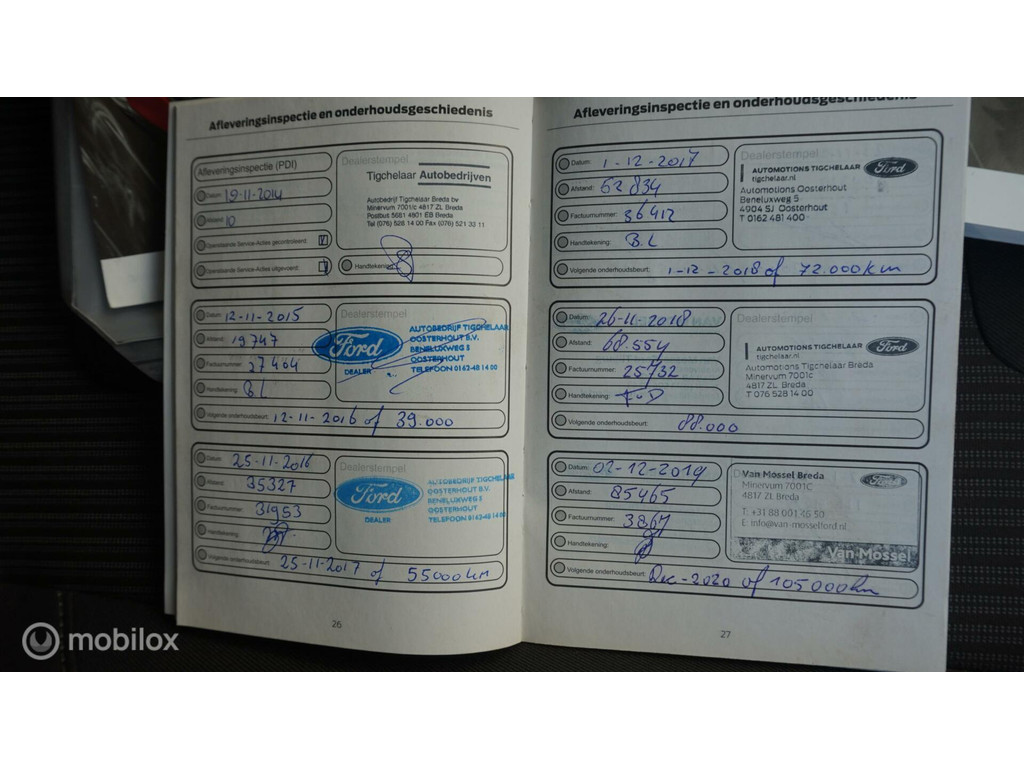 Afleveringsinspectie en onderhoudsgeschiedenis
Afleveringsinspectie (PDI)
Datum: 19-11-2014
Afstand: 10
Openstaande Service-Acties gecontroleerd:
Openstaande Service-Acties uitgevoerd:
Dealerstempel
Tigchelaar Autobedrijven
Autobedrijf Tigchelaar Breda bv
Minervum 7001c 4817 ZL Breda
Postbus 5661 4801 EB Breda
Tel (076) 528 14 00 Fax (076) 521 33 11
Handtekening:
Datum: 12-11-2015
Afstand: 19747
Factuurnummer: 27404
Handtekening: B.L
Dealerstempel
Ford
DEALER
AUTOBEDRIJF TIGCHELAAR
OOSTERHOUT B.V.
BENELUXWEG 5
OOSTERHOUT
TELEFOON 0162-48 14 00
Volgende onderhoudsbeurt: 12-11-2016 of 39.000
Datum: 25-11-2016
Afstand: 35327
Factuurnummer: 31953
Handtekening:
Dealerstempel
Ford
DEALER
AUTOBEDRIJF TIGCHELAAR
OOSTERHOUT B.V.
BENELUXWEG 5
OOSTERHOUT
TELEFOON 0162-48 14 00
Volgende onderhoudsbeurt: 25-11-2017 of 55000km
26
Afleveringsinspectie en onderhoudsgeschiedenis
Datum: 1-12-2017
Afstand: 52834
Factuurnummer: 36412
Handtekening: B.L
Dealerstempel
AUTOMOTIONS TIGCHELAAR
tigchelaar.nl
Ford
Automotions Oosterhout
Beneluxweg 5
4904 SJ Oosterhout
T 0162 481 400
Volgende onderhoudsbeurt: 1-12-2018 of 72.000km
Datum: 26-11-2018
Afstand: 68.554
Factuurnummer: 25732
Handtekening:
Dealerstempel
AUTOMOTIONS TIGCHELAAR
tigchelaar.nl
Ford
Automotions Tigchelaar Breda
Minervum 7001c
4817 ZL Breda
T 076 528 14 00
Volgende onderhoudsbeurt: 88.000
Datum: 02-12-2019
Afstand: 85465
Factuurnummer: 3867
Handtekening:
Van Mossel Breda
Minervum 7001C
4817 ZL Breda
T: +31 88 001 46 50
E: info@van-mosselford.nl
Ford
Van Mossel
Volgende onderhoudsbeurt: Dec-2020 of 105000km
27
mobilox